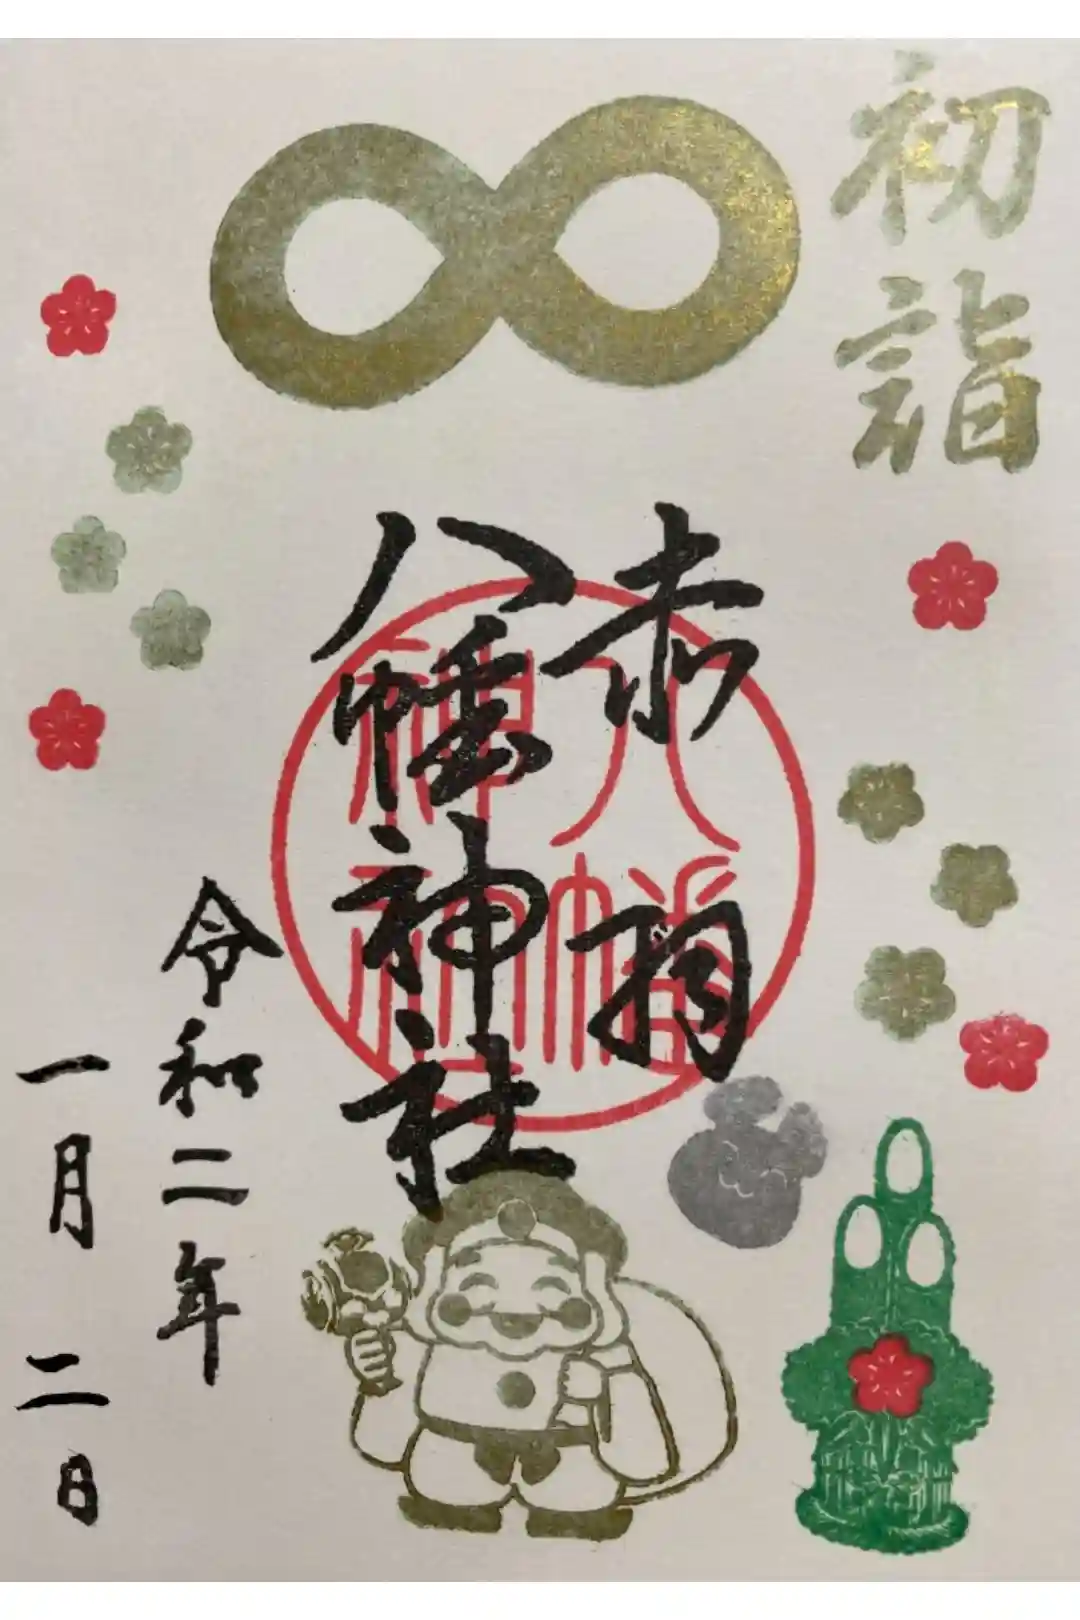 初詣
赤羽
八幡神社
八幡
神社
令和二年
一月二日